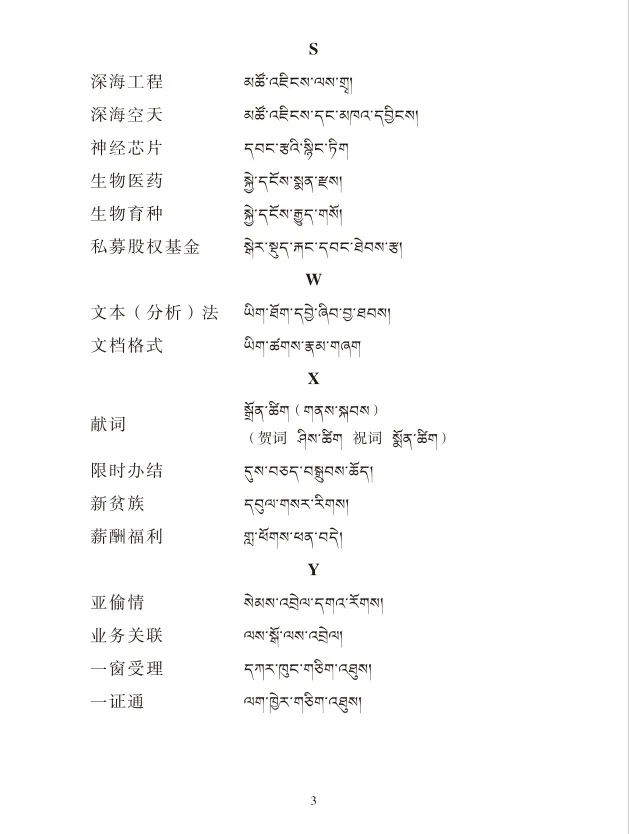 S
深海工程 མཚོ་འཇིངས་ལས་གྲྭ།
深海空天 མཚོ་འཇིངས་དང་མཁའ་དབྱིངས།
神经芯片 དབང་རྩའི་སྙིང་ཏིག
生物医药 སྐྱེ་དངོས་སྨན་རྫས།
生物育种 སྐྱེ་དངོས་རྒྱུད་གསོ།
私募股权基金 སྒེར་སྡུད་རྐང་དབང་ཐེབས་རྩ།
W
文本（分析）法 ཡིག་ཐོག་དབྱེ་ཞིབ་བྱ་ཐབས།
文档格式 ཡིག་ཚགས་རྣམ་གཞག
X
献词 སྨྲོན་ཚིག（གནས་སྐབས）
（贺词 ཤིས་ཚིག 祝词 སྨོན་ཚིག）
限时办结 དུས་བཅད་བསྒྲུབས་ཚོད།
新贫族 དབུལ་གསར་རིགས།
薪酬福利 གླ་ཕོགས་ཕན་བདེ།
Y
亚偷情 སེམས་འབྲེལ་དགའ་རོགས།
业务关联 ལས་སྒོ་ལས་འབྲེལ།
一窗受理 དཀར་ཁུང་གཅིག་འཐུས།
一证通 ལག་ཁྱེར་གཅིག་འཐུས།
3